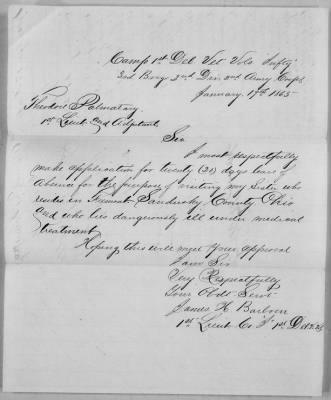 Camp 1st Del Vet Vols Infty
3rd Brig 2nd Div 2nd Army Corps
January 17th 1865
Theodore Palmatary
1st Lieut and Adjutant
Sir
I most respectfully
make application for twenty (20) days leave of
Absence for the purpose of visiting my sister who
resides in Fremont Sandusky County Ohio
and who lies dangerously ill under medical
treatment
Hoping this will meet your approval
I am Sir
Very Respectfully
Your Obdt Servt
James H Barlow
1st Lieut Co "F" 1st Del